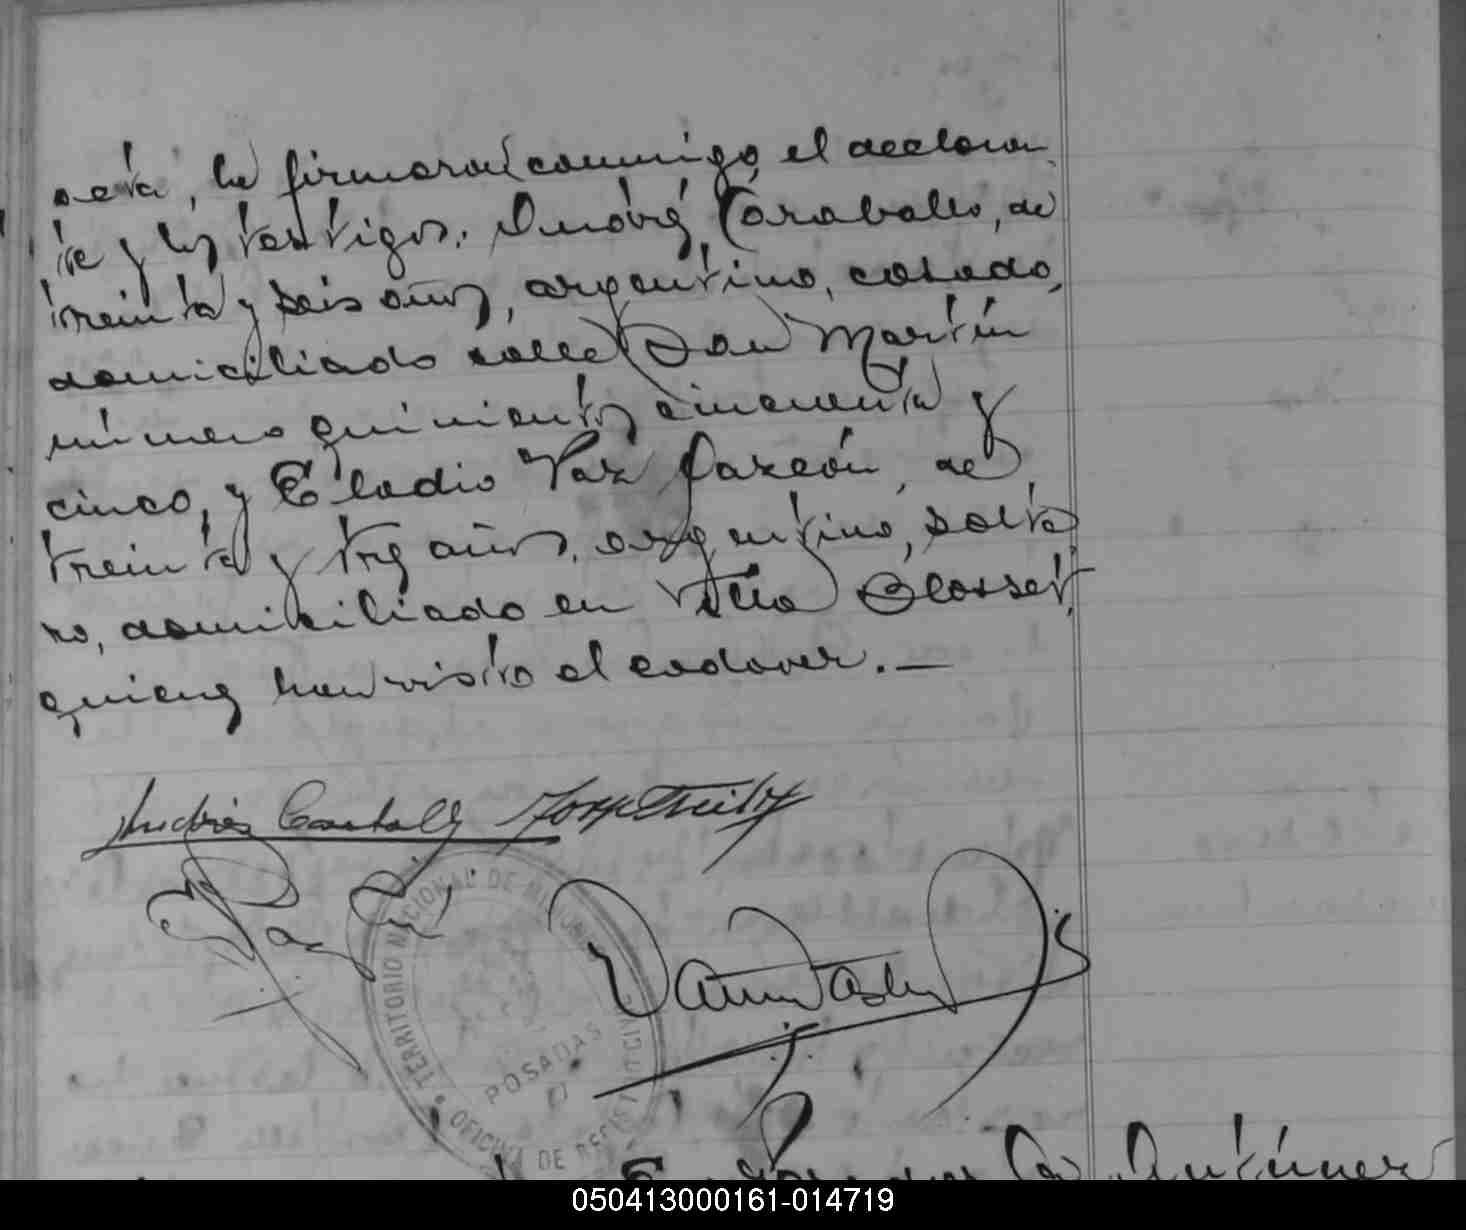 acta, la firmaron conmigo, el declaran
te y los testigos: Andrés Caraballo, de
treinta y seis años, argentino, casado,
domiciliado calle San Martín
número quinientos cincuenta y
cinco, y Eladio Paz Garzón, de
treinta y tres años, argentino, solte
ro, domiciliado en Villa Blosset,
quienes han visto el cadaver. —
Andrés Caraballo
E Paz G
TERRITORIO NACIONAL DE MISIONES
POSADAS
OFICINA DE REGISTRO CIVIL
050413000161-014719